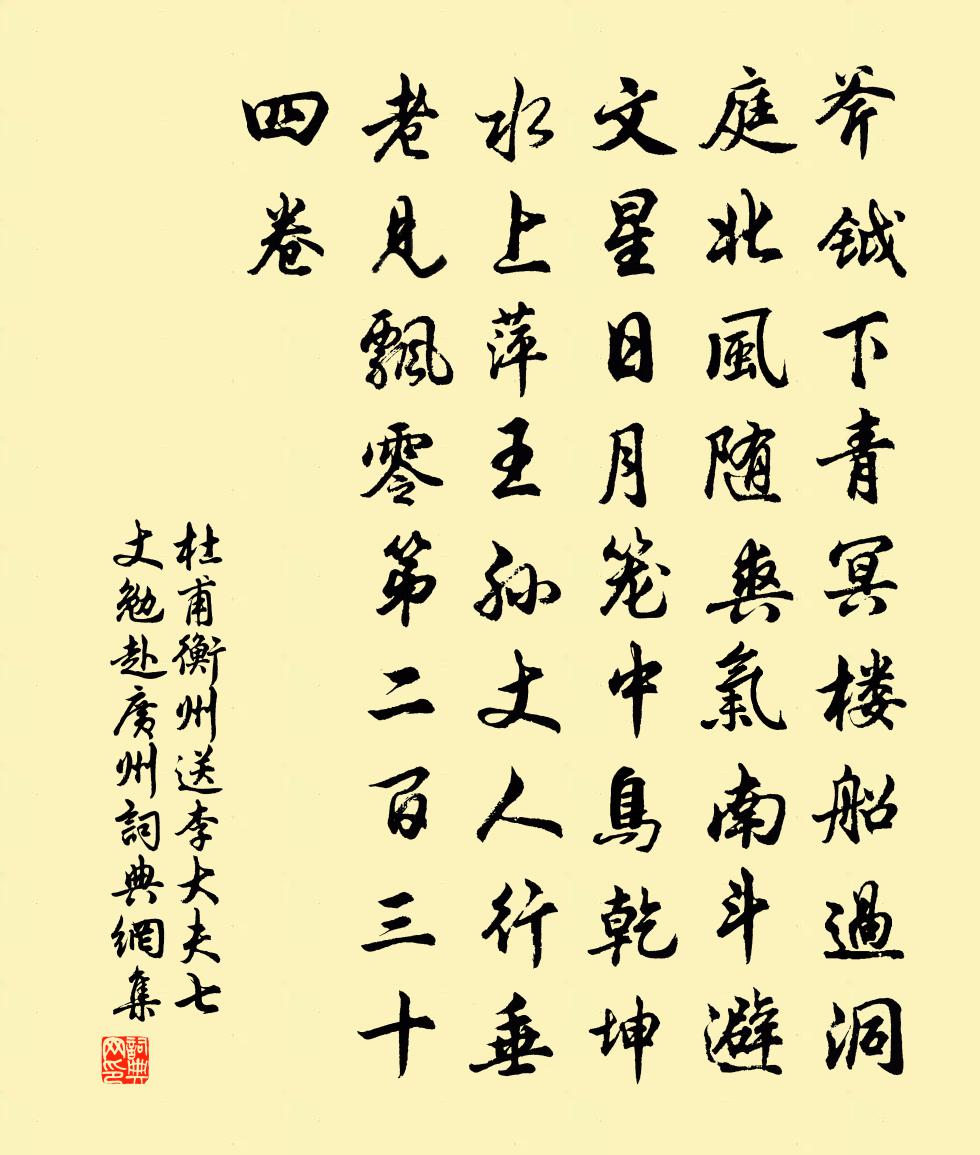 斧鉞下青冥楼船過洞
庭北風随爽氣南斗避
文星日月笼中鳥乾坤
水上萍王孙丈人行垂
老見飄零第二百三十
四卷
杜甫衡州送李大夫七
丈勉赴廣州詞典網集
詞典网印